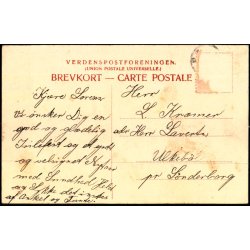 VERDENSPOSTFORENINGEN.
(UNION POSTALE UNIVERSELLE.)
BREVKORT – CARTE POSTALE
Kjære Lorenz
Vi ønsker Dig en
god og glædelig
Juleaften og et
velsignet Nytaar
med Sundhed Held
og
Herr
L. Kramer
Herr
Ulkebøl
pr Sönderborg